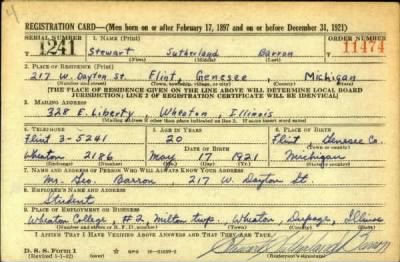 REGISTRATION CARD—(Men born on or after February 17, 1897 and on or before December 31, 1921)
SERIAL NUMBER 1. NAME (Print) ORDER NUMBER
1241 Stewart Sutherland Barron 11474
(First) (Middle) (Last)
2. PLACE OF RESIDENCE (Print)
217 W. Dayton St. Flint, Genesee Michigan
(Number and street) (Town, township, village, or city) (County) (State)
[THE PLACE OF RESIDENCE GIVEN ON THE LINE ABOVE WILL DETERMINE LOCAL BOARD
JURISDICTION; LINE 2 OF REGISTRATION CERTIFICATE WILL BE IDENTICAL]
3. MAILING ADDRESS
328 E. Liberty Wheaton, Illinois
[Mailing address if other than place indicated on line 2. If same insert word same]
4. TELEPHONE 5. AGE IN YEARS 6. PLACE OF BIRTH
Flint 3-5241 20 Flint Genesee Co.
DATE OF BIRTH (Town or county)
Wheaton 2186 May 17 1921 Michigan
(Exchange) (Number) (Mo.) (Day) (Yr.) (State or country)
7. NAME AND ADDRESS OF PERSON WHO WILL ALWAYS KNOW YOUR ADDRESS
Mr. Geo. Barron, 217 W. Dayton St
8. EMPLOYER'S NAME AND ADDRESS
Student
9. PLACE OF EMPLOYMENT OR BUSINESS
Wheaton College, #2, Milton twp. Wheaton, Dupage, Illinois
(Number and street or R. F. D. number) (Town) (County) (State)
I AFFIRM THAT I HAVE VERIFIED ABOVE ANSWERS AND THAT THEY ARE TRUE.
D. S. S. Form 1
(Revised 1-1-42) (over) Stewart Sutherland Barron
(Registrant's signature)